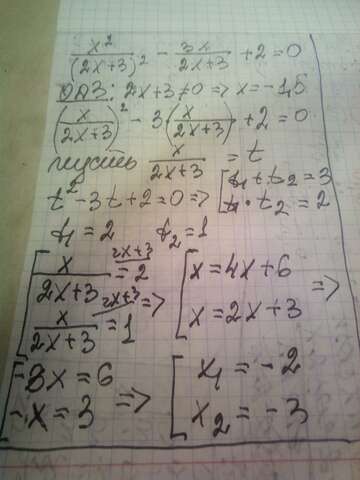 x²/(2x+3)² - 3x/(2x+3) + 2 = 0
ОДЗ: 2x+3≠0 => x = -1,5
(x/(2x+3))² - 3(x/(2x+3)) + 2 = 0
пусть x/(2x+3) = t
t² - 3t + 2 = 0 => [t₁ + t₂ = 3
t₁ · t₂ = 2
t₁ = 2 t₂ = 1
[x/(2x+3) = 2 2x+3 [x = 4x + 6
x/(2x+3) = 1 2x+3 => x = 2x + 3 =>
[-3x = 6 [x₁ = -2
-x = 3 => x₂ = -3